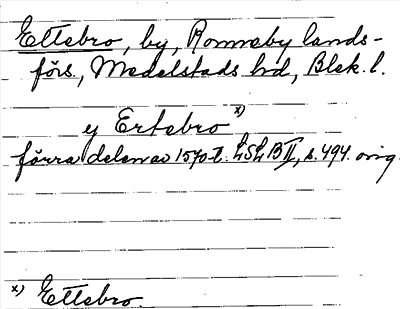 Ettebro, by, Ronneby lands-
förs., Medelstads hd, Blek. l.
y Ertebro x)
förra delen av 1570-t. LSL B II, s. 494. orig.
x) Ettebro.